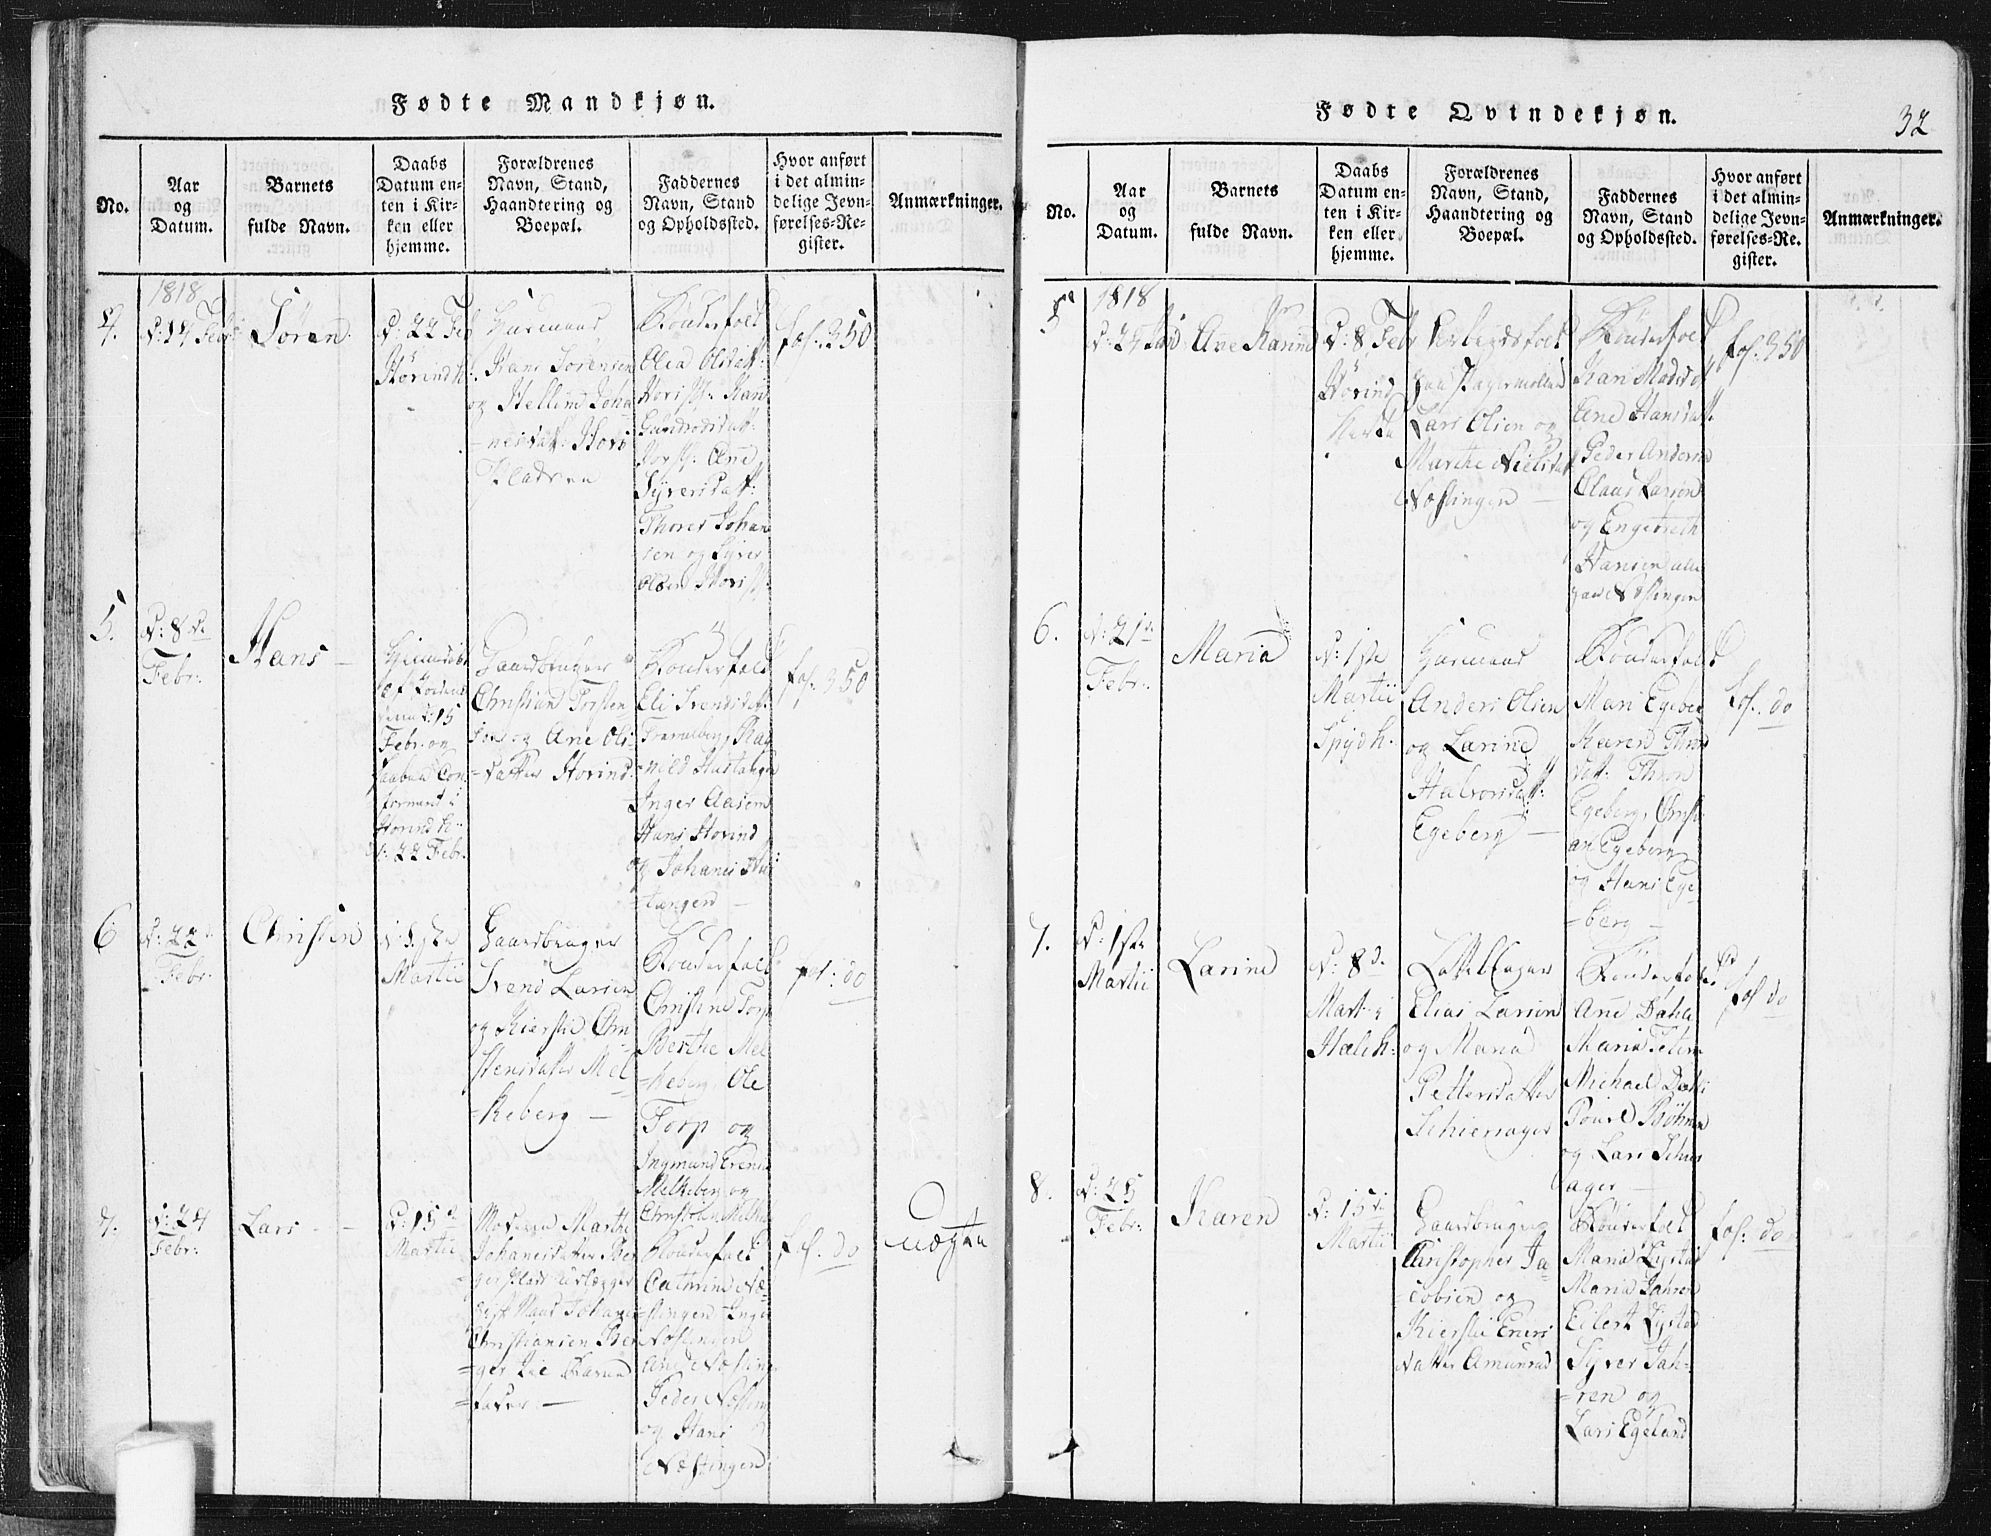 Fødte Mandkjøn.
No.
Aar
og
Datum.
Barnets
fulde Navn.
Daabs
Datum en-
ten i Kir-
ken eller
hjemme.
Forældrenes
Navn, Stand,
Haandtering og
Boepæl.
Faddernes
Navn, Stand
og Opholdssted.
Hvor anført
i det almin-
delige Jevn-
førelses-Re-
gister.
Anmærkninger.
4.
1818
d: 14 Febr:
Søren
d: 22 Feb
Hovind k:
Huusmand
Hans Sørensen
og Hellene Joha
-nesdatt: Hovi
Pladsen
Bønderfolk
Olea Olsdatt:
Hovi
Gundrosdatt:
Ane
Syversdatt:
Thorer Johan
sen og Syver
Olsen Hovi
fol. 350
5.
d: 8de
Febr:
Hans -
d: 15
Febr. og
Con-
firmeret i
Hovind k:
d: 22 Febr.
Gaardbruger
Christian Torsten-
sen og Ane Ols-
datter Hovind
Bønderfolk
Eli Svendsdat:
Rag
-nild Hustangen
Inger Aasen
Hans Hovind
og Johanes Hu
-stangen -
fol. 350
6
d: 22
Febr.
Christen
d: 1ste
Martii
Gaardbruger
Svend Larsen
og Kierstie Chri-
stensdatter Mel-
-keberg -
Bønderfolk
Christine Torp
Berthe Mel-
-keberg, Ole
Torp og
Ingmund
Melkeberg og
Christian Melke
fol: do
7.
d: 24
Febr:
Lars - -
d: 15de
Martii
Moderen Marthe
Johanesdatter Ber
ger Plads Udlægger
Johanes
Christiansen Ber
-ger
Bønderfolk
Cathrine Næ-
-stingen Inger
Næstingen
Ane Næstinge
Peder Næstin
og Hans
Næstingen
fol. do
uægte
Fødte Qvindekjøn.
32
No.
Aar
og
Datum.
Barnets
fulde Navn.
Daabs
Datum en-
ten i Kir-
ken eller
hjemme.
Forældrenes
Navn, Stand,
Haandtering og
Boepæl.
Faddernes
Navn, Stand
og Opholdssted.
Hvor anført
i det almin-
delige Jevn-
førelses-Re-
gister.
Anmærkninger.
5
1818
d: 27 Jan
Ane Karine
d: 8 Febr
Hovind
Kirke
Arbeidsfolk
paa
Lars Olsen og
Marthe Nielsdat
Næstingen -
Bønderfolk
Kari Madsdat
Ane Hansdatt:
Peder Andersen
Claus Larsen
og Engebreth
Hansen alle
paa Næstingen
fol. 350
6.
d: 21de
Febr:
Maria
d: 1ste
Martii
Spydk.
Huusmand
Anders Olsen
og Larine
Halvorsdatt:
Egeberg -
Bønderfolk
Mari Egeber
Karen Thron
datt: Thron
Egeberg, Christi
an Egeberg
og Hans Ege-
-berg -
fol. do
7.
d: 1ste
Martii
Larine
d: 8de
Mart i
Halk:
Elias Larsen
og Maria
Pettersdatter
Schierager
Bønderfolk
Ane Dahle
Maria
Michael Dahli
Pouel Böhmen
og Lars Schier
ager -
fol do
8.
d: 25
Febr:
Karen
d: 15de
Martii
Gaardbruger
Christopher Ja-
-cobsen og
Kierstie Eners
datter Amunrud
Bønderfolk
Maria Lystad
Maria Jahren
Eilert Lystad
Syver Jah-
-ren og
Lars Egeland
fol. do